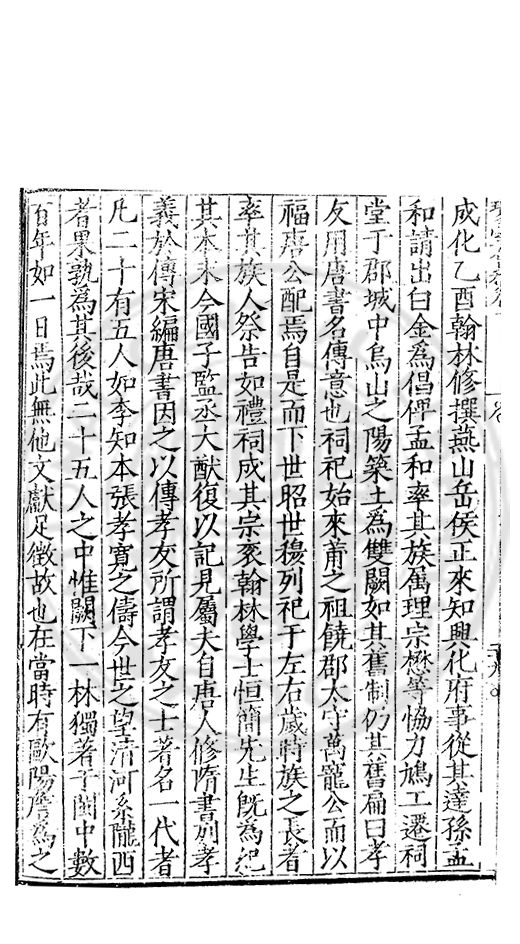 成化乙酉翰林修撰燕山岳侯正來知興化府事從其達孫孟
和請出白金爲倡俾孟和率其族萬理宗懋等恊力鳩工遷祠
堂于郡城中烏山之陽築土爲雙闕如其舊制仍其舊扁曰孝
友用唐書名傳意也祠祀始來莆之祖饒郡太守萬寵公而以
福唐公配焉自是而下世昭世穆列祀于左右歲時族之長者
率其族人祭告如禮祠成其宗衮翰林學士恒簡先生旣為紀
其本末今國子監丞大猷復以記見屬夫自唐人修隋書列孝
義於傳宋編唐書因之以傳孝友所謂孝友之士著名一代者
凡二十有五人如李知本張孝寛之儔今世之望清河系隴西
者果孰爲其後哉二十五人之中惟闕下一林獨著于閩中數
百年如一日焉此無他文獻足徵故也在當時有歐陽詹為之